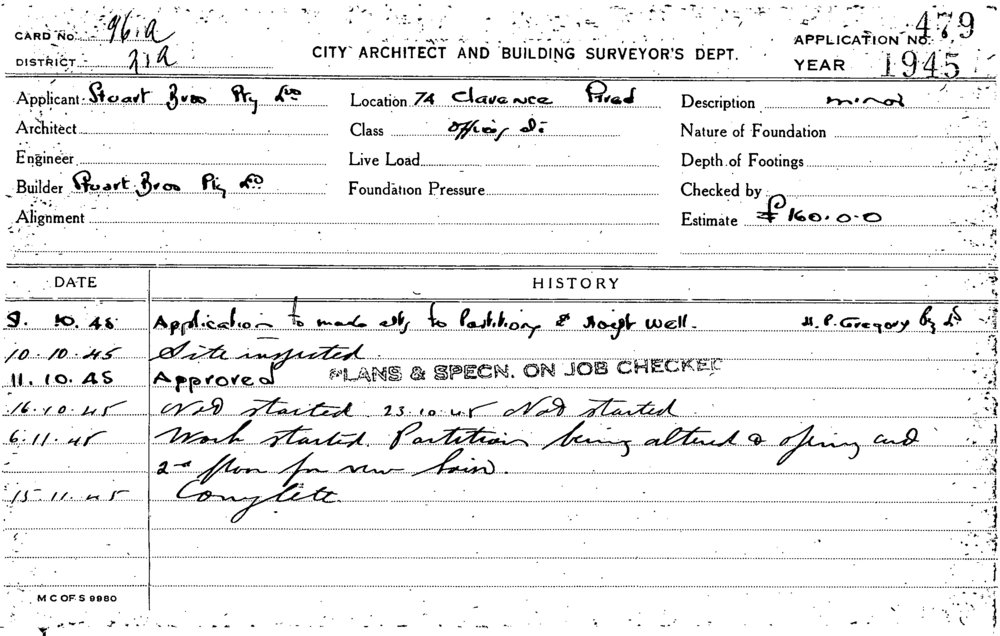 CARD No. 96.A
DISTRICT 21A
CITY ARCHITECT AND BUILDING SURVEYOR'S DEPT.
APPLICATION No. 479
YEAR 1945
Applicant Stuart Bros Pty Ltd
Location 74 Clarence
Description minor
Architect
Class
Nature of Foundation
Engineer
Live Load
Depth of Footings
Builder Stuart Bros Pty Ltd
Foundation Pressure
Checked by
Alignment
Estimate £160.0.0
DATE HISTORY
9. 10. 45 Application to make alts to Partitions & Hoist Well. H. P. Gregory Pty Ltd
10.10.45 Site inspected.
11.10.45 Approved PLANS & SPECN. ON JOB CHECKED
16.10.45 Not started. 23.10.45 Not started
6.11.45 Work started. Partitions being altered &
2nd floor for new
15.11.45 Complete.
M C OF S 9980